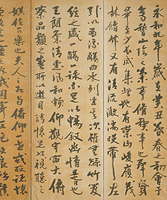 永和九年歲在癸丑暮春之初會
稽山陰之蘭亭脩稧事也羣賢
畢至少長咸集此地有崇山峻嶺茂
林脩竹又有清流激湍暎帶左
引以為流觴曲水列坐其次雖無絲竹管
弦之盛一觴一詠亦足以暢敘幽情是日也
天朗氣清惠風和暢仰觀宇宙之大俯
察品類之盛所以遊目騁懷足以極視聽之
娛信可樂也夫人之相與俯仰一世或取諸懷